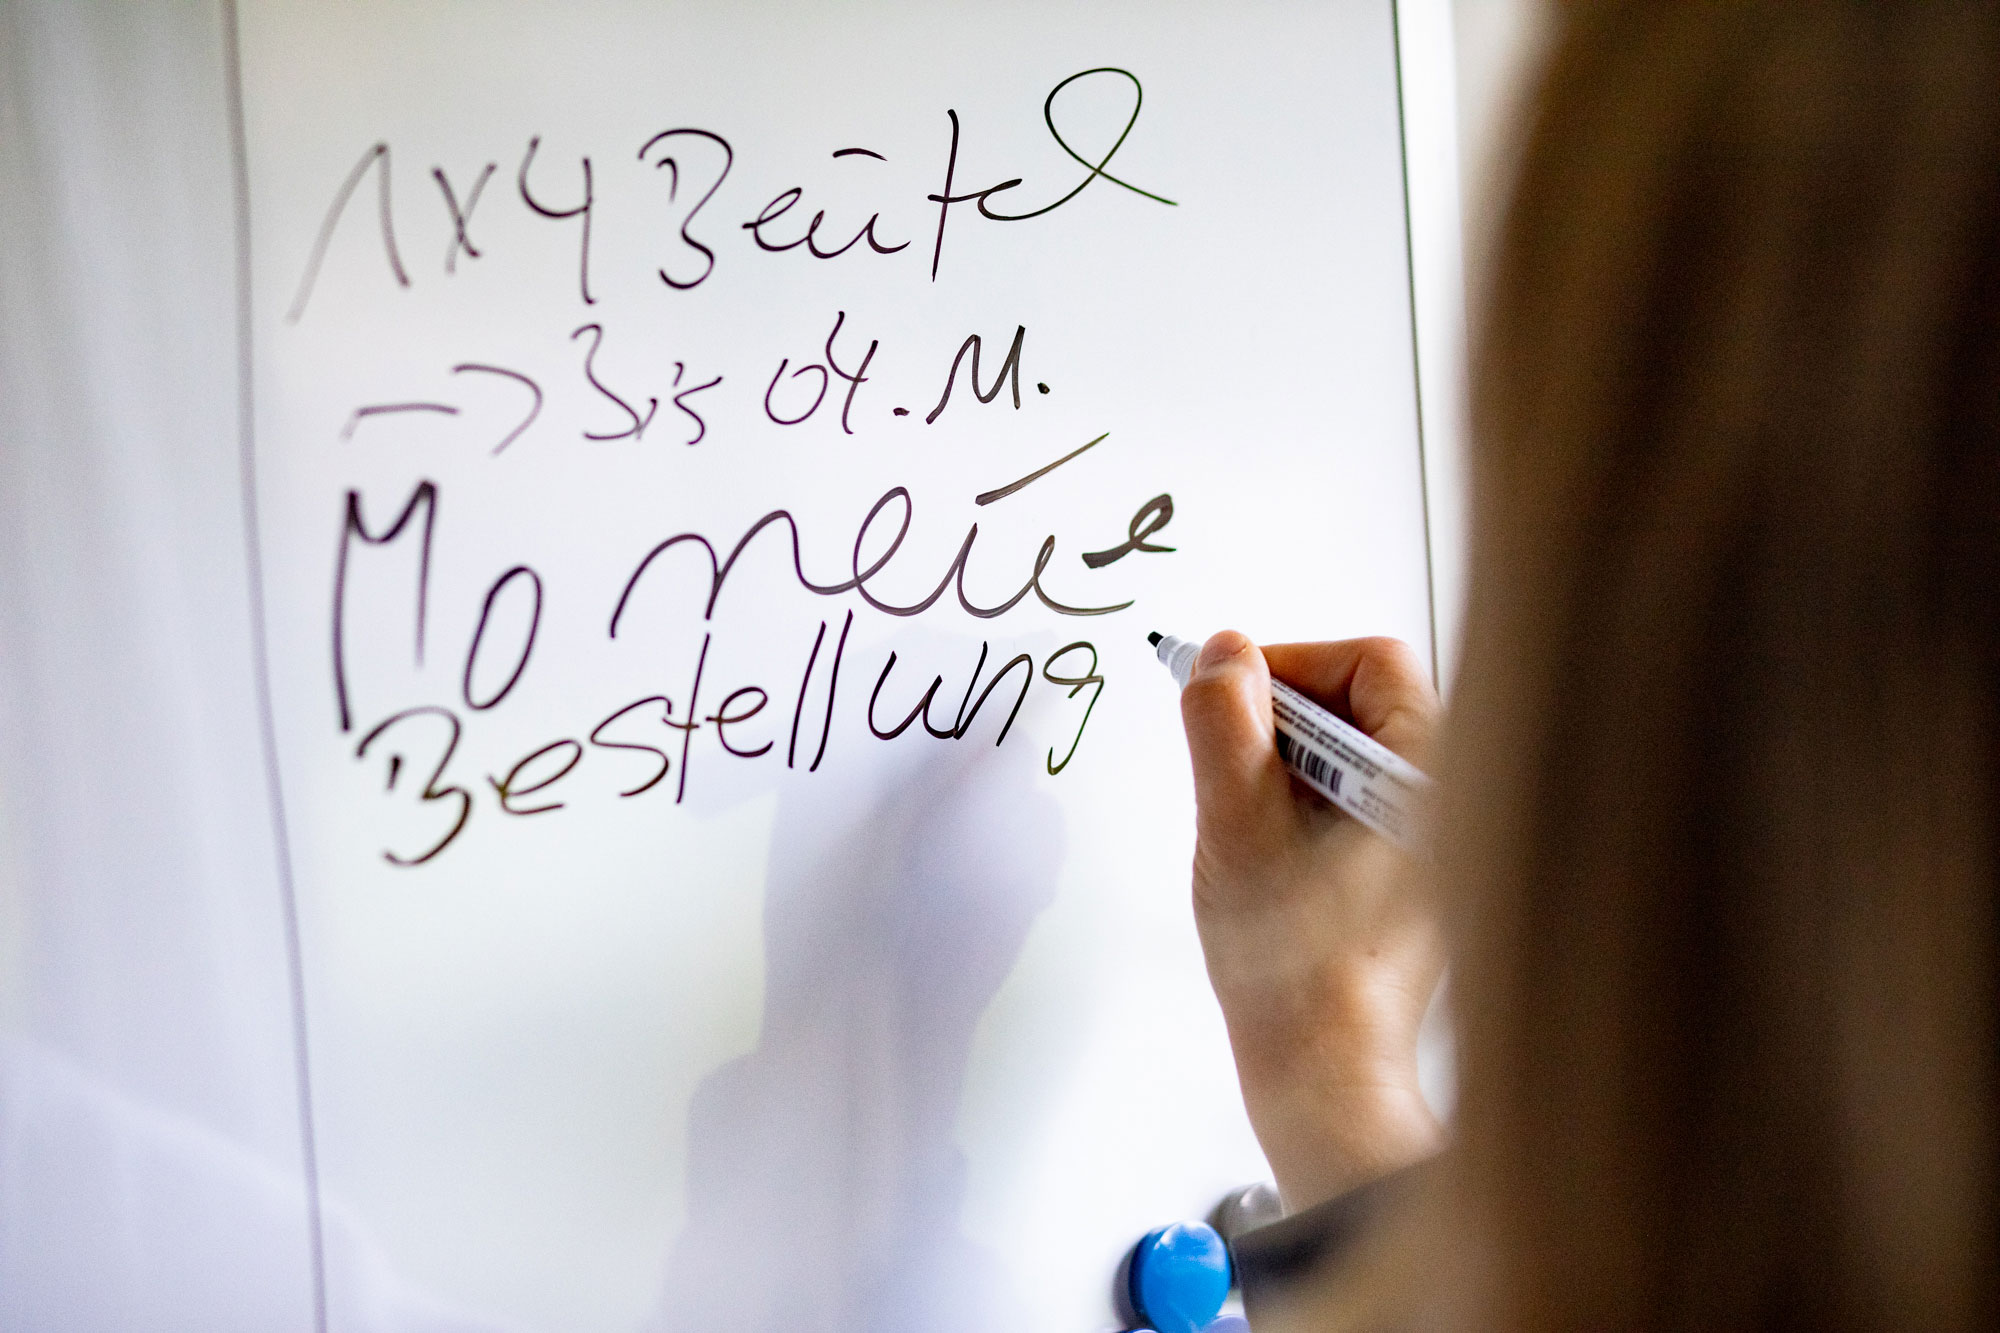 1x4 Beutel
→ Bis 04.11.
Mo neue
Bestellung